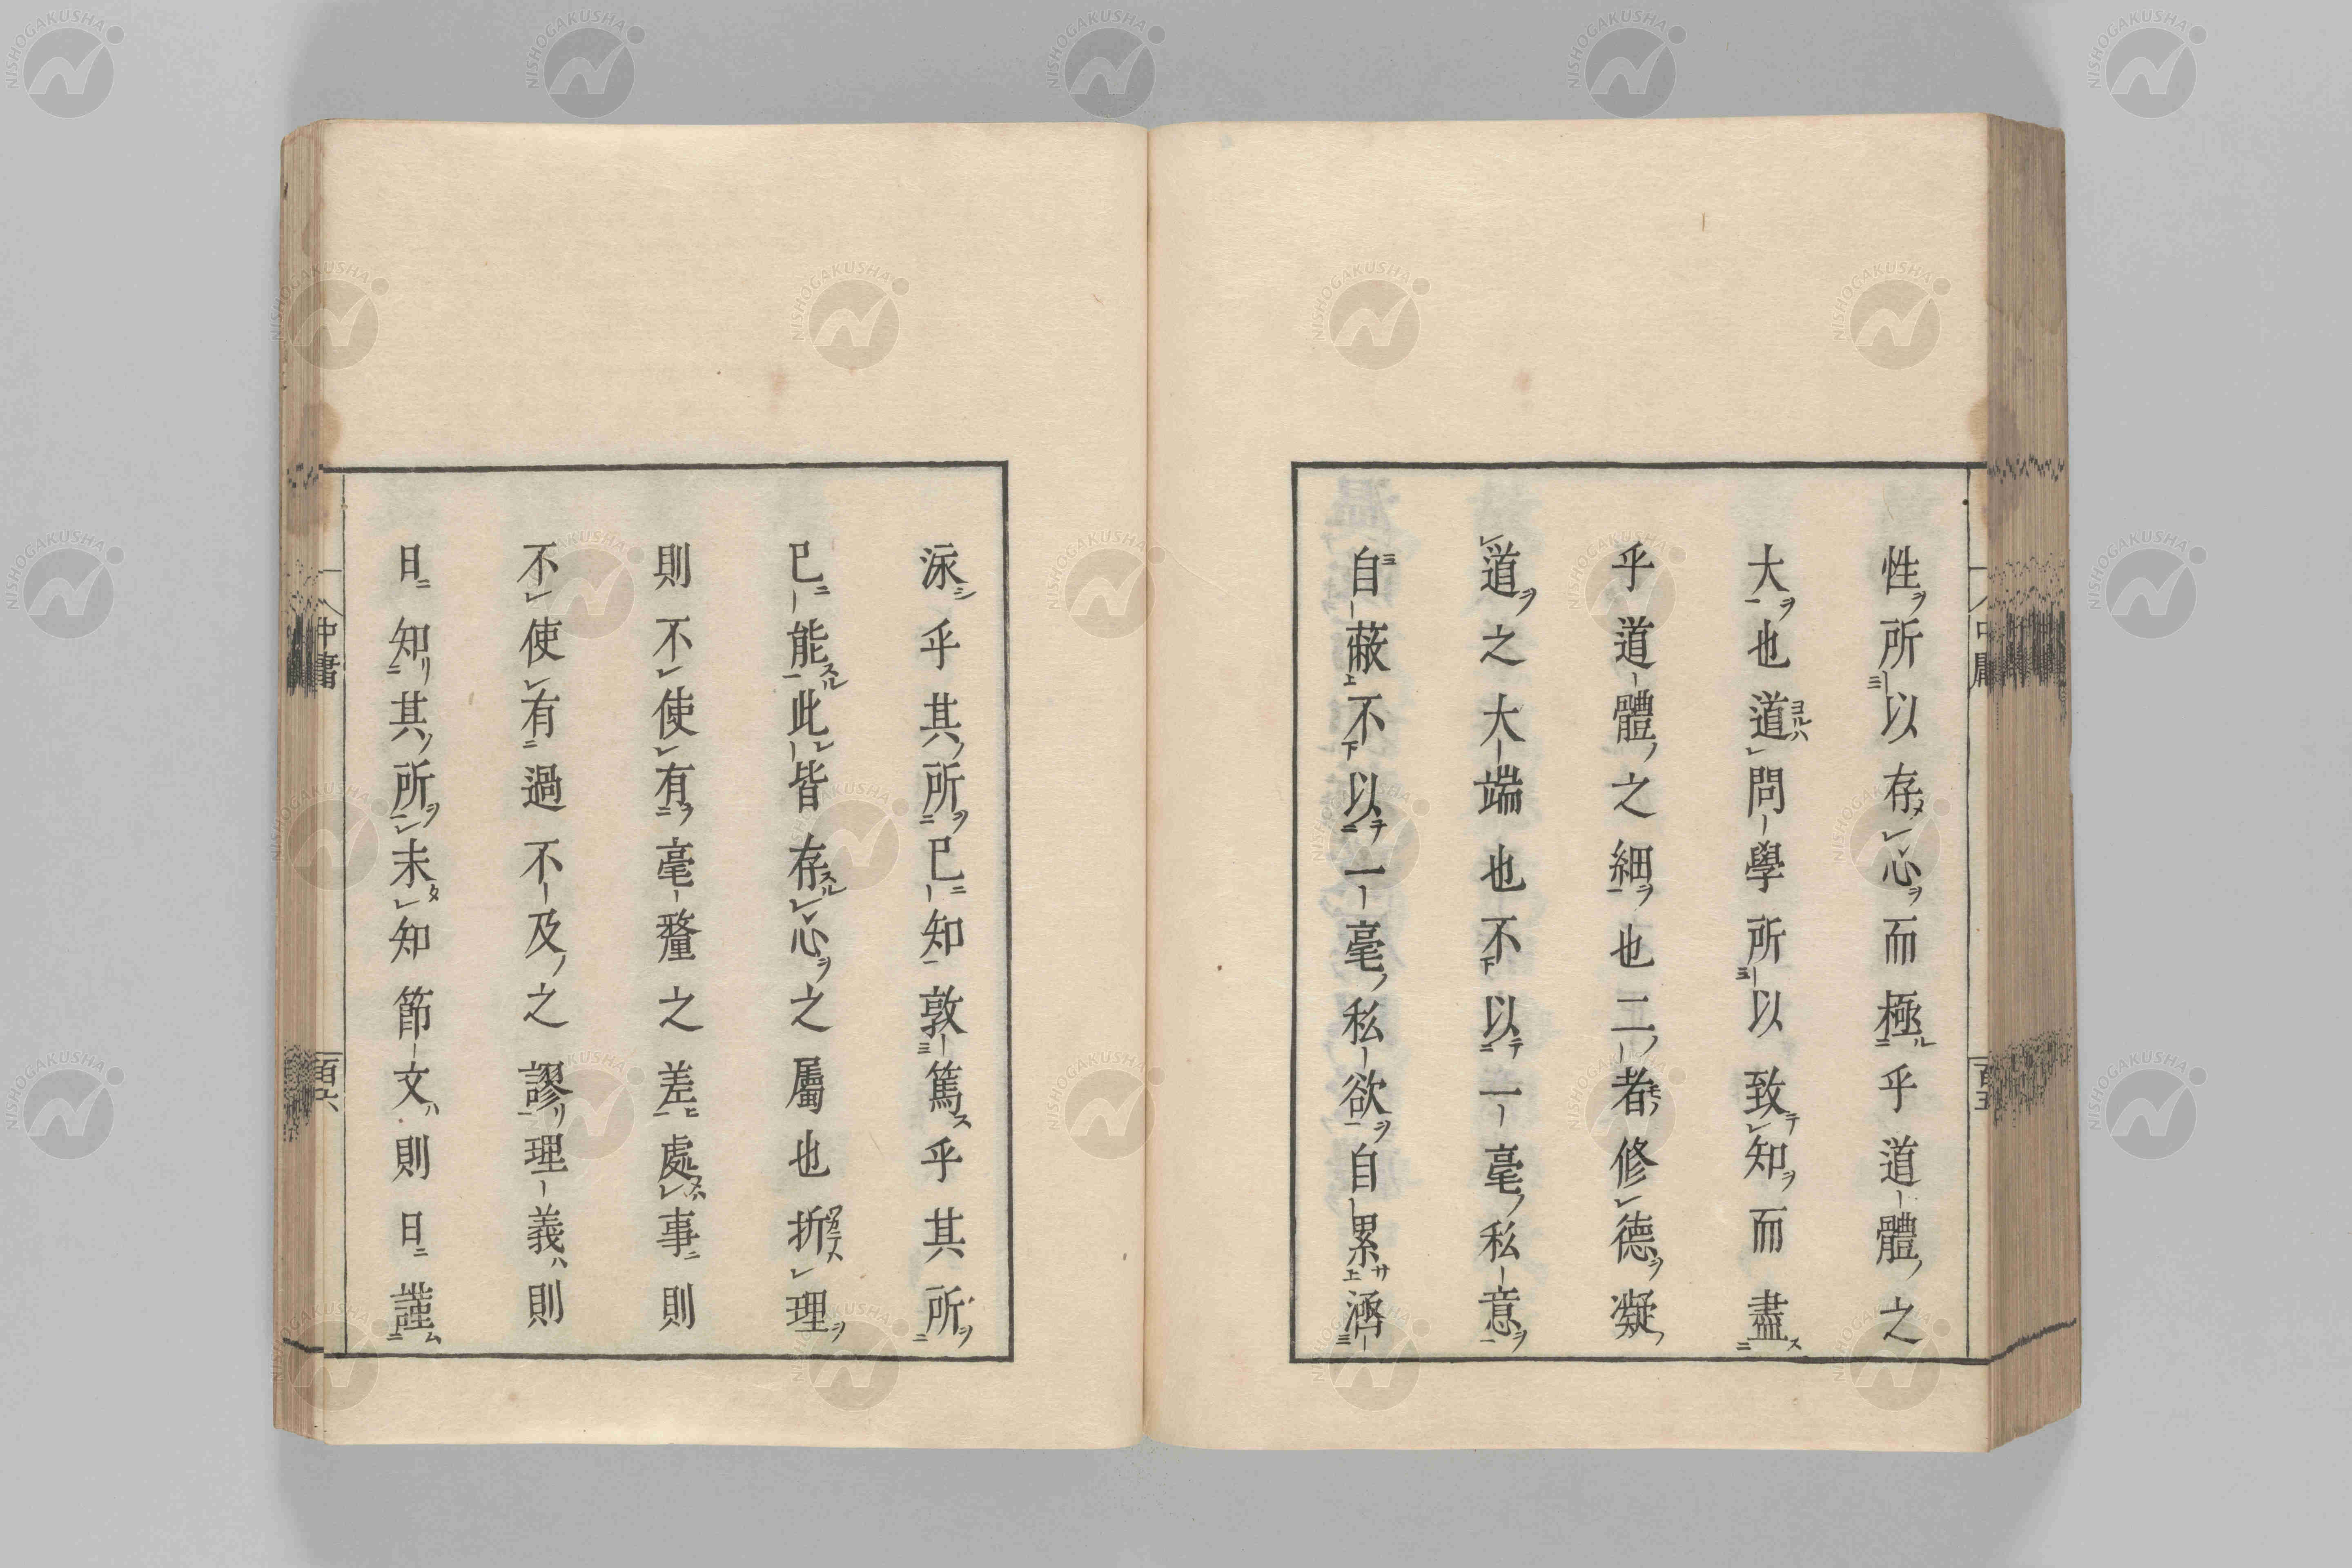 性所以存心而極乎道體之
大也道問學所以致知而盡
乎道體之細也二者修德凝
道之大端也不以一毫私意
自蔽不以一毫私欲自累涵
泳乎其所已知敦篤乎其所
已能此皆存心之屬也析理
則不使有毫釐之差處事則
不使有過不及之謬理義則
日知其所未知節文則日謹
中庸
百五
中庸
百六
NISHOGAKUSHA